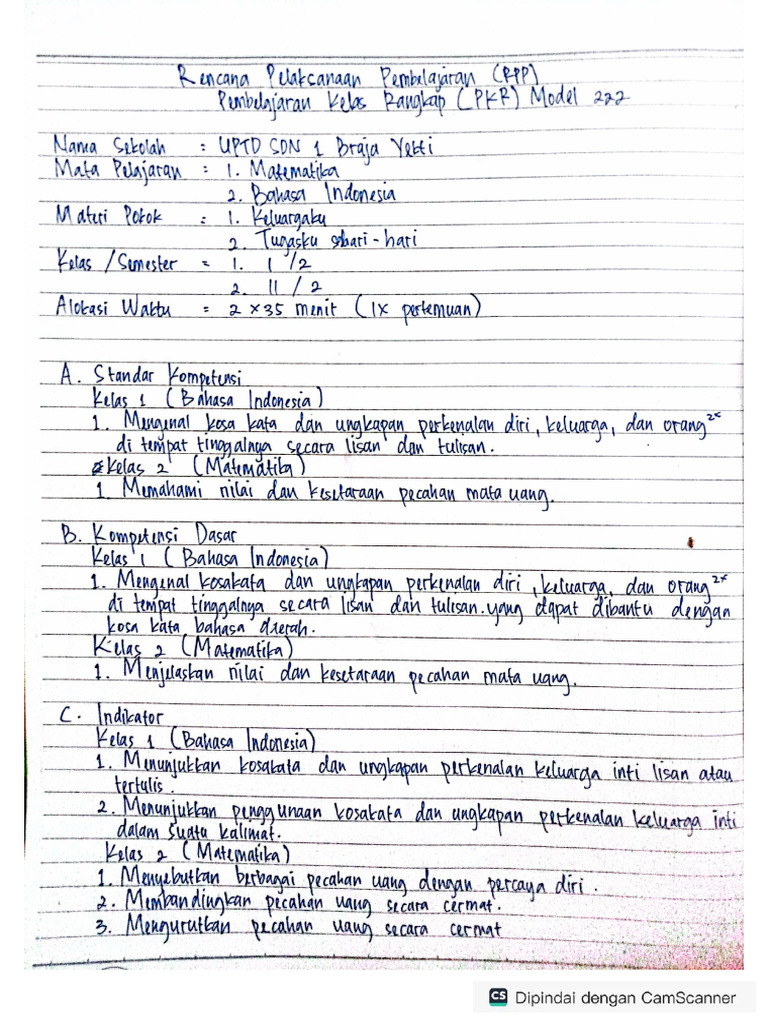 Rencana Pelaksanaan Pembelajaran (RPP)
Pembelajaran Kelas Rangkap (PKR) Model 222
Nama Sekolah : UPTD SDN 1 Braja Yekti
Mata Pelajaran : 1. Matematika
2. Bahasa Indonesia
Materi Pokok : 1. Keluargaku
2. Tugasku sehari-hari
Kelas / Semester = 1. I / 2
2. II / 2
Alokasi Waktu = 2 x 35 menit (1x pertemuan)
A. Standar Kompetensi
Kelas 1 (Bahasa Indonesia)
1. Mengenal kosa kata dan ungkapan perkenalan diri, keluarga, dan orang2x
di tempat tinggalnya secara lisan dan tulisan.
Kelas 2 (Matematika)
1 Memahami nilai dan kesetaraan pecahan mata uang.
B. Kompetensi Dasar
Kelas 1 (Bahasa Indonesia)
1. Mengenal kosakata dan ungkapan perkenalan diri, keluarga, dan orang2x
di tempat tinggalnya secara lisan dan tulisan. yang dapat dibantu dengan
kosa kata bahasa daerah.
Kelas 2 (Matematika)
1. Menjelaskan nilai dan kesetaraan pecahan mata uang.
C. Indikator
Kelas 1 (Bahasa Indonesia)
1. Menunjukkan kosakata dan ungkapan perkenalan keluarga inti lisan atau
tertulis.
2. Menunjukkan penggunaan kosakata dan ungkapan perkenalan keluarga inti
dalam suatu kalimat.
Kelas 2 (Matematika)
1. Menyebutkan berbagai pecahan uang dengan percaya diri.
2. Membandingkan pecahan uang secara cermat.
3. Mengurutkan pecahan uang secara cermat
CS Dipindai dengan CamScanner